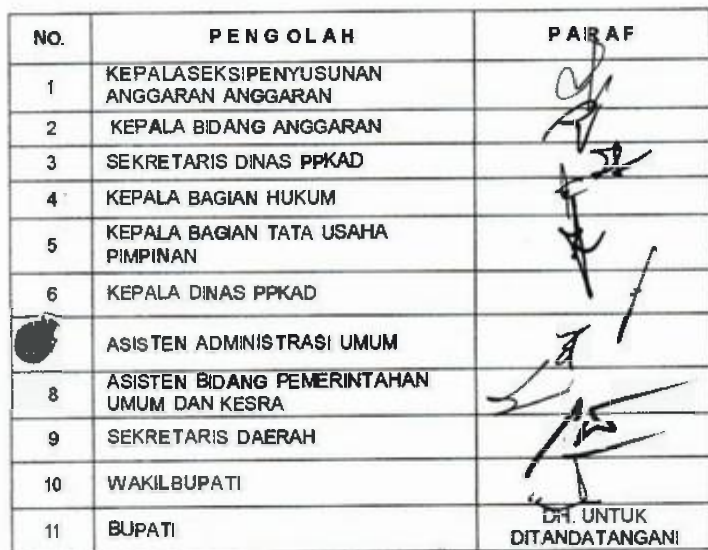 NO. PENGOLAH PARAF
1 KEPALASEKSIPENYUSUNAN
ANGGARAN ANGGARAN
2 KEPALA BIDANG ANGGARAN
3 SEKRETARIS DINAS PPKAD
4 KEPALA BAGIAN HUKUM
5 KEPALA BAGIAN TATA USAHA
PIMPINAN
6 KEPALA DINAS PPKAD
ASISTEN ADMINISTRASI UMUM
8 ASISTEN BIDANG PEMERINTAHAN
UMUM DAN KESRA
9 SEKRETARIS DAERAH
10 WAKILBUPATI
11 BUPATI DH. UNTUK
DITANDATANGANI